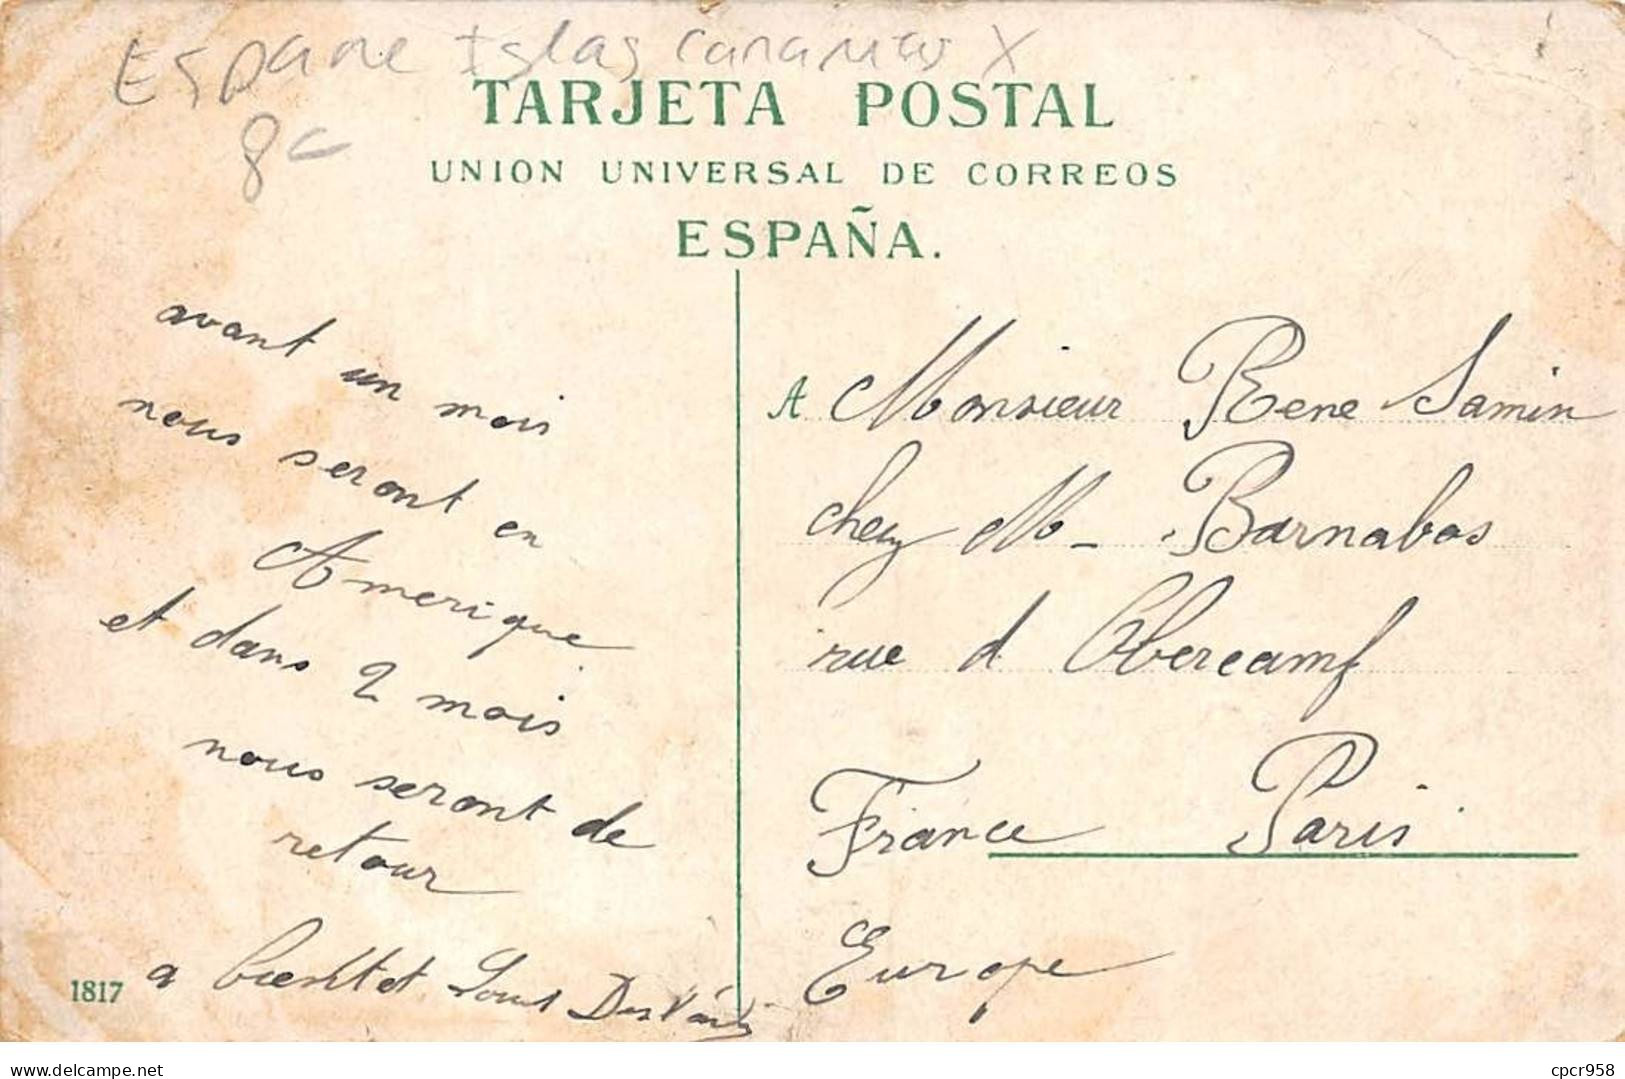 Espane Islas Canarias X
8c
TARJETA POSTAL
UNION UNIVERSAL DE CORREOS
ESPAÑA.
avant un mois
nous seront en
Amerique
et dans 2 mois
nous seront de
retour
a bientot Louis
1817
A Monsieur Rene Samin
chez M - Barnabas
rue d Obercamf
France Paris
Europe
www.delcampe.net
cpcr958